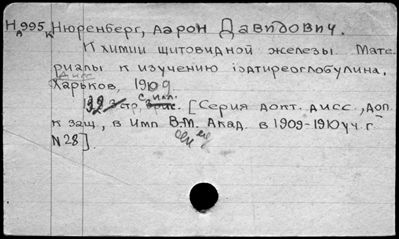 Нюренберг, Аарон Давидович.
К химии щитовидной железы. Мате-
риалы к изучению іодтиреоглобулина.
Дисс.
Харьков, 1909
с илл.
стр. [Серия докт. дисс., доп.
к защ., в Имп. В.М. Акад. в 1909-1910 уч. г.
N 28].